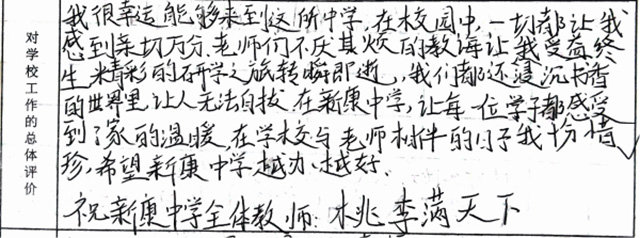 对学校工作的总体评价
我很幸运能够来到这所中学,在校园中,一切都让我
感到亲切万分.老师们不厌其烦的教诲让我受益终
生.精彩的研学之旅转瞬即逝,我们都还浸沉书香
的世界里让人无法自拔.在新康中学,让每一位学子都感受
到了家的温暖.在学校与老师相伴的日子我万分惜
珍,希望新康中学越办、越好.
祝新康中学全体教师:桃李满天下